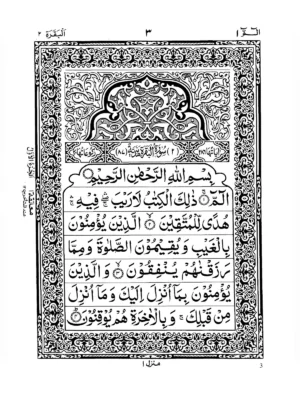 الٓمّٓ ١ ٣ البقرة ٢
(٢) سورة البقرة مدنية (٨٧)
بِسْمِ اللهِ الرَّحْمٰنِ الرَّحِيْمِ
الٓمّٓ ۚ ذٰلِكَ الْكِتٰبُ لَا رَيْبَ ۛ فِيْهِ ۛ
هُدًى لِّلْمُتَّقِيْنَ ۙ الَّذِيْنَ يُؤْمِنُوْنَ
بِالْغَيْبِ وَ يُقِيْمُوْنَ الصَّلٰوةَ وَ مِمَّا
رَزَقْنٰهُمْ يُنْفِقُوْنَ ۙ وَ الَّذِيْنَ
يُؤْمِنُوْنَ بِمَآ اُنْزِلَ اِلَيْكَ وَ مَآ اُنْزِلَ
مِنْ قَبْلِكَ ۚ وَ بِالْاٰخِرَةِ هُمْ يُوْقِنُوْنَ
منزل ١
3